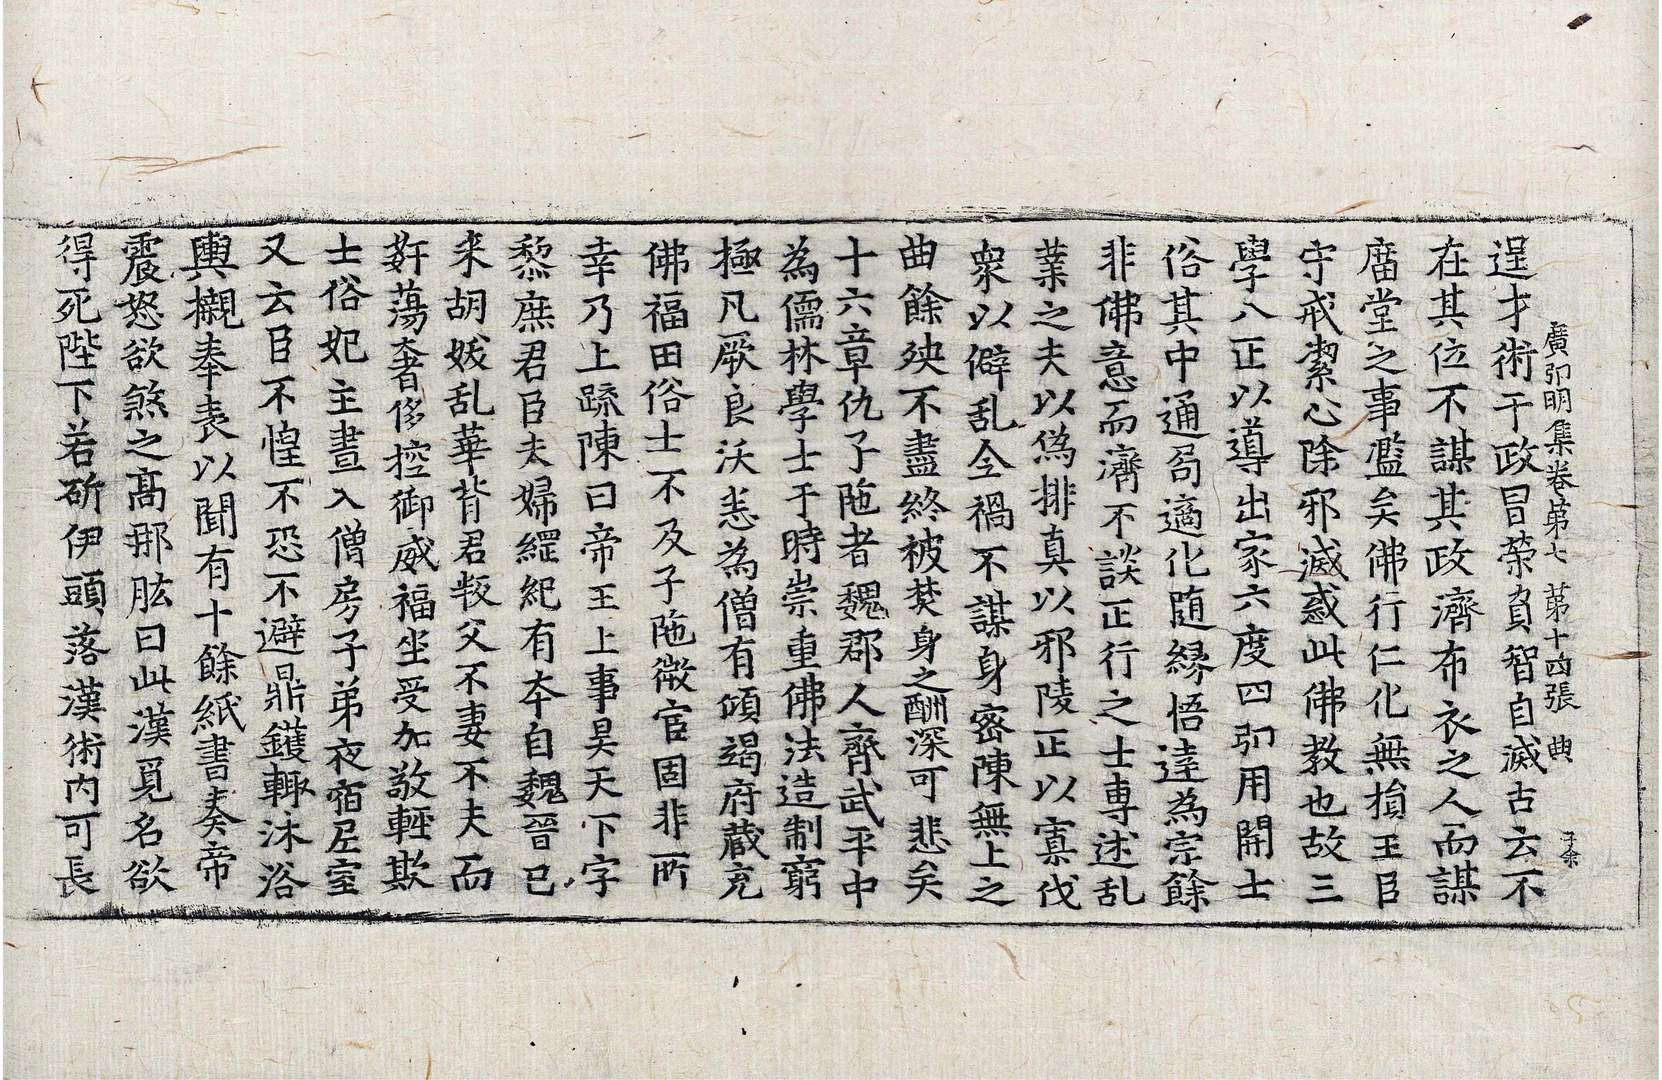 逞才術干政冒荣負智自滅古云不
廣弘明集卷第七 第十四張 典 子余
在其位不謀其政濟布衣之人而謀
庿堂之事濫矣佛行仁化無損王臣
守戒潔心除邪滅惑此佛教也故三
學八正以導出家六度四弘用開士
俗其中通局適化随縁悟達為宗餘
非佛意而濟不談正行之士専述乱
業之夫以偽排真以邪陵正以寡伐
衆以僻乱全禍不謀身密陳無上之
曲餘殃不盡終被焚身之酬深可悲矣
十六章仇子陁者魏郡人齊武平中
為儒林學士于時崇重佛法造制窮
極凡厥良沃悉為僧有傾竭府蔵充
佛福田俗士不及子陁微官固非所
幸乃上䟽陳曰帝王上事昊天下字
黎庶君臣夫婦綱紀有本自魏晉已
来胡妖乱華背君叛父不妻不夫而
姧蕩奢侈控御威福坐受加敬輕欺
士俗妃主晝入僧房子弟夜宿尼室
又云臣不惶不恐不避鼎鑊輙沐浴
輿櫬奉表以聞有十餘紙書奏帝
震怒欲煞之髙那肱曰此漢覓名欲
得死陛下若斫伊頭落漢術内可長